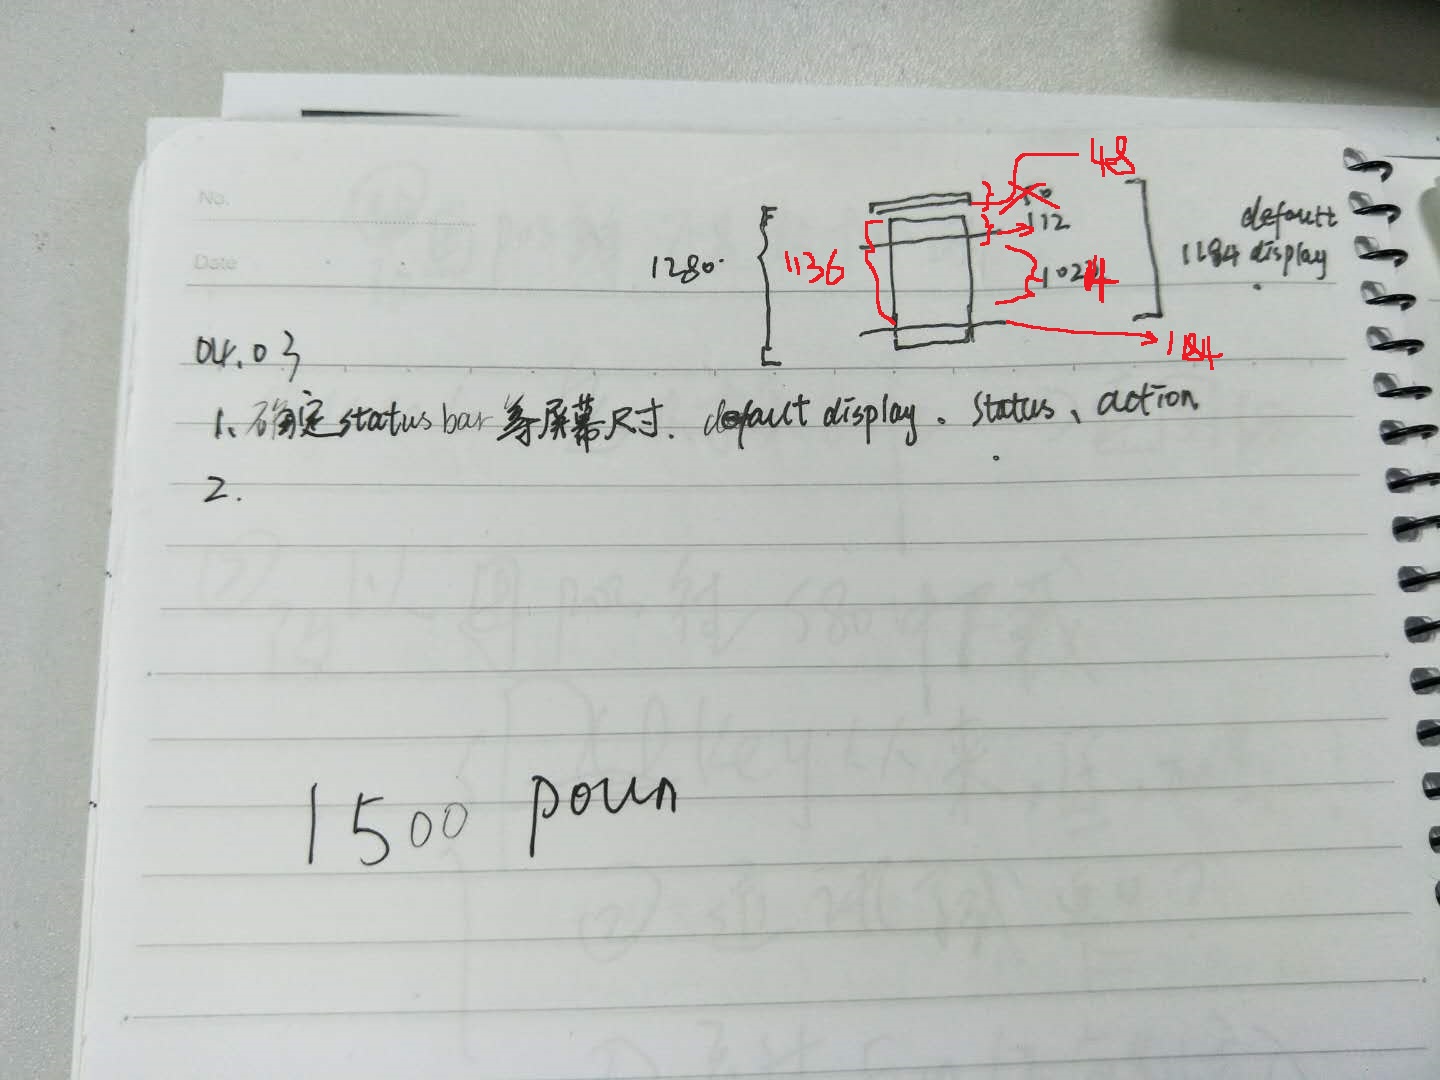 No.
Date
48
50
112
1280.
1136
1024
default
1184 display
1184
04.03
1、确定status bar等屏幕尺寸. default display. status、action
2.
1500 poun